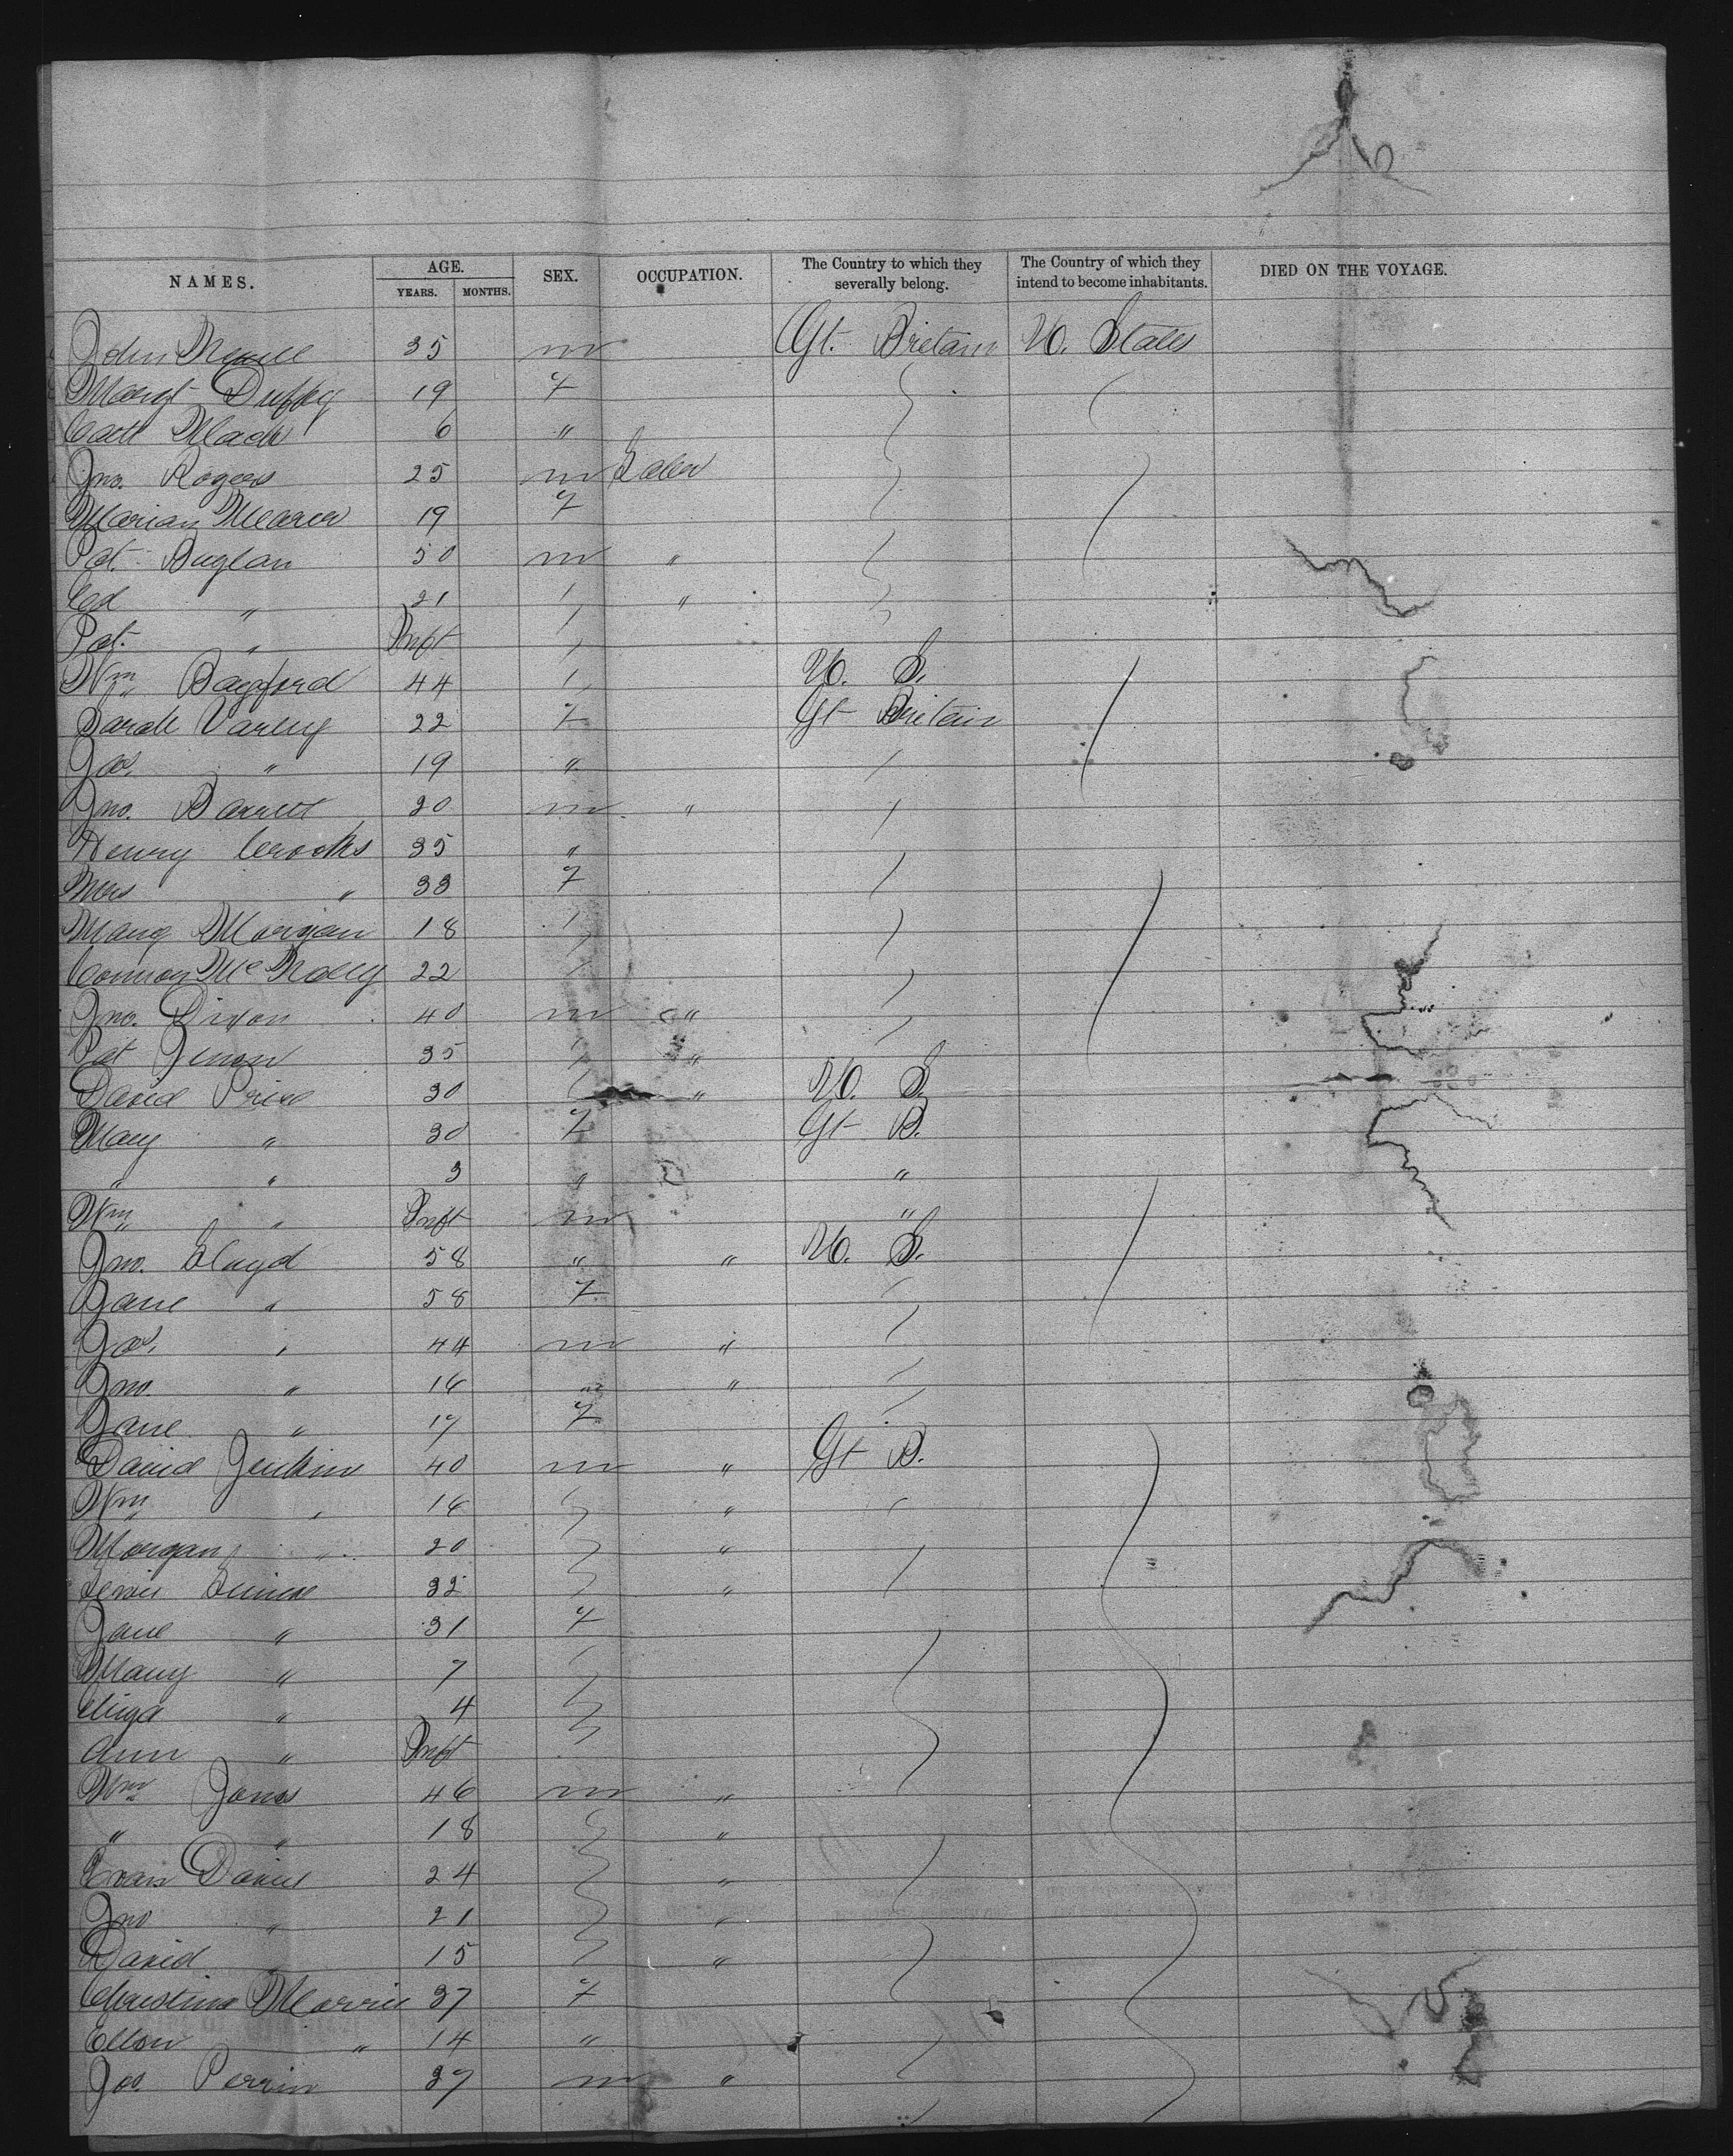 NAMES. AGE. SEX. OCCUPATION. The Country to which they severally belong. The Country of which they intend to become inhabitants. DIED ON THE VOYAGE.
YEARS. MONTHS.
John 35 m Gt. Britain U. States
Margt Duffey 19 f
Cath Mack 6 "
Jno. Rogers 25 m Labor
Marian 19 f
Pat. Buglan 50 m "
Ed " 21 "
Pat. " Inft
Wm Bayford 44 U. S.
Sarah Varley 22 f Gt Britain
Jos. " 19 "
Jno. Barrett 20 m "
Henry Crooks 35 "
Mrs " 33 f
Marg Morgan 18
Connor McNally 22
Jno. Dixon 40 m "
Pat 35 "
David Price 30 " U. S.
Mary " 30 f Gt B.
" " 3 " "
Wm " Inft m "
Jno. Lloyd 58 " " U. S.
Jane " 58 f
Jos. " 44 m "
Jno. " 16 " "
Jane " 17 f
David Jenkins 40 m " Gt B.
Wm " 16 "
Morgan " 20 "
Lewis 32 "
Jane " 31 f
Mary " 7
Eliza " 4
Ann " Inft
Wm Jones 46 m "
" " 18 "
Evan Davies 24 "
Jno " 21 "
David " 15 "
Christina Morris 37 f
Ellen " 14 "
Jos. Perrin 37 m "